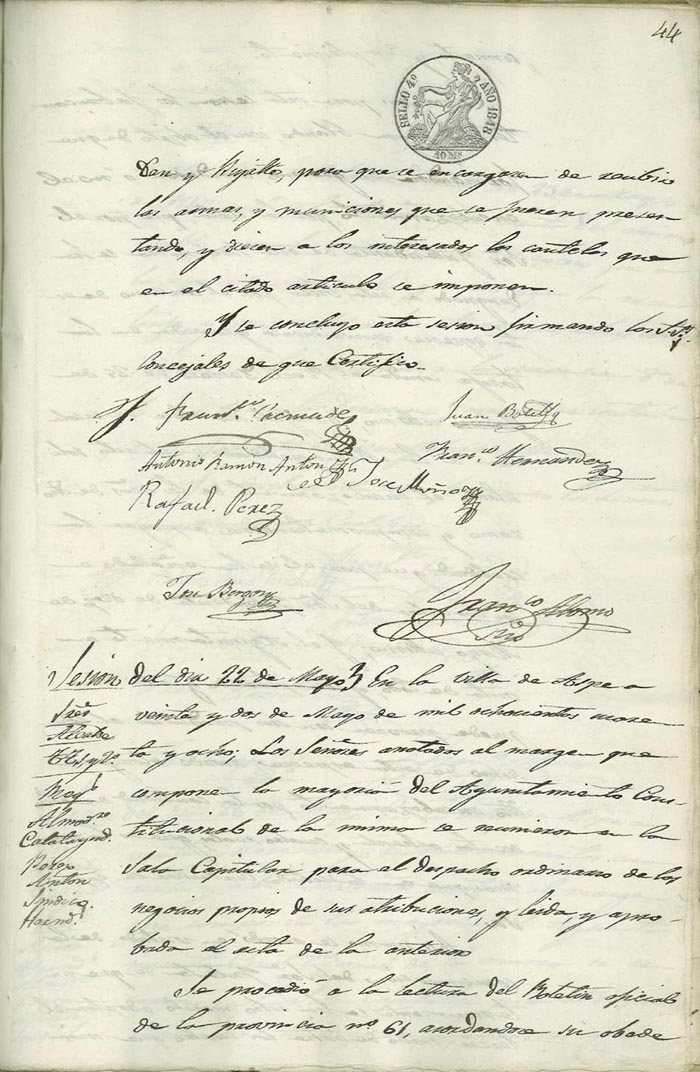 44
SELLO 4º AÑO 1848
40 Ms
Dan y Mujitto, para que se encargaran de recibir
las armas, y municiones que se fueren presen
tando, y diesen a los interesados las cautelas que
en el citado articulo se imponen.
Y se concluyo esta sesion firmando los Sres
Concejales de que Certifico.
Juan Botella
Antonio Ramon Anton
Franco Hernandez
Jose Muñoz
Rafael Perez
Jose Borgoñoz
Franco
Srio
Sesion del dia 22 de Mayo } En la villa de Aspe a
Sres veinte y dos de Mayo de mil ochocientos cuare
Alcalde ta y ocho; Los Señores anotados al margen que
Regs compone la mayoria del Ayuntamiento Cons
Almodre titucional de la misma se reunieron en la
Catalaynd.
Perez Sala Capitular para el despacho ordinario de los
Anton
Sindico negocios propios de sus atribuciones, y leida, y apro-
Hernd. bada el acta de la anterior
Se procedió a la lectura del Boletin oficial
de la provincia nº 61, acordandose su obede